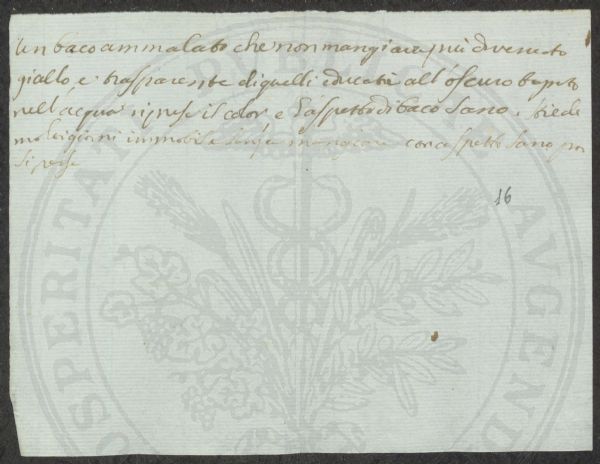 Un baco ammalato che non mangiava più divenuto
giallo e trasparente di quelli educati all'oscuro
nell'acqua riprese il color e l'aspetto di baco sano.
molti giorni immobile senza mangiare con aspetto sano poi
si perse
16
PROSPERITATI PUBLICAE AUGENDAE